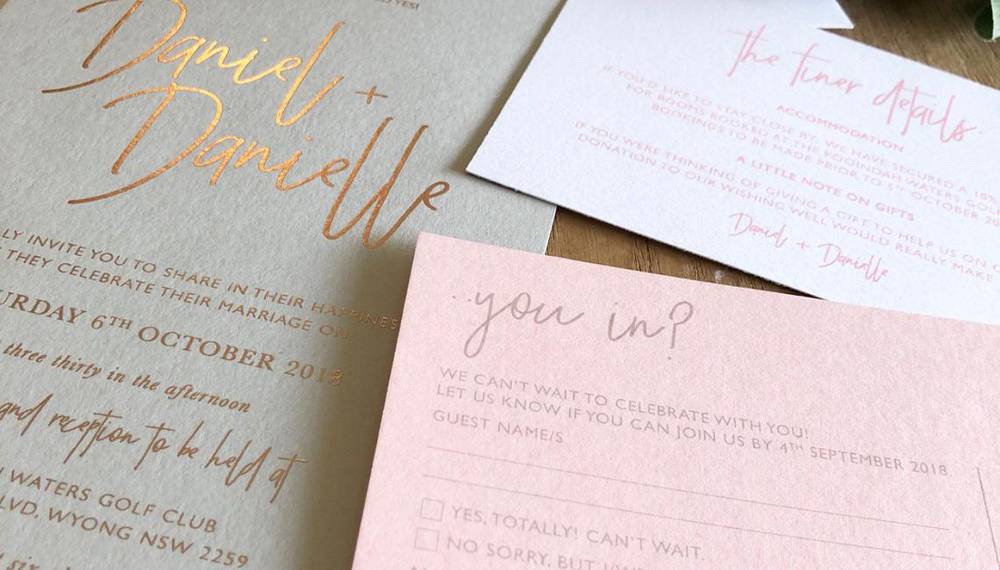 YES!
Daniel +
Danielle
LY INVITE YOU TO SHARE IN THEIR HAPPINES
THEY CELEBRATE THEIR MARRIAGE ON
URDAY 6TH OCTOBER 2018
three thirty in the afternoon
and reception to be held at
WATERS GOLF CLUB
LVD, WYONG NSW 2259
the finer details
ACCOMMODATION
IF YOU'D LIKE TO STAY CLOSE BY, WE HAVE SECURED A 10%
FOR ROOMS BOOKED AT THE KOOINDAH WATERS GOL
BOOKINGS TO BE MADE PRIOR TO 5TH OCTOBER 20
A LITTLE NOTE ON GIFTS
IF YOU WERE THINKING OF GIVING A GIFT TO HELP US ON O
DONATION TO OUR WISHING WELL WOULD REALLY MAKE
Daniel + Danielle
..you in?
WE CAN'T WAIT TO CELEBRATE WITH YOU!
LET US KNOW IF YOU CAN JOIN US BY 4TH SEPTEMBER 2018
GUEST NAME/S
YES, TOTALLY! CAN'T WAIT.
NO SORRY, BUT